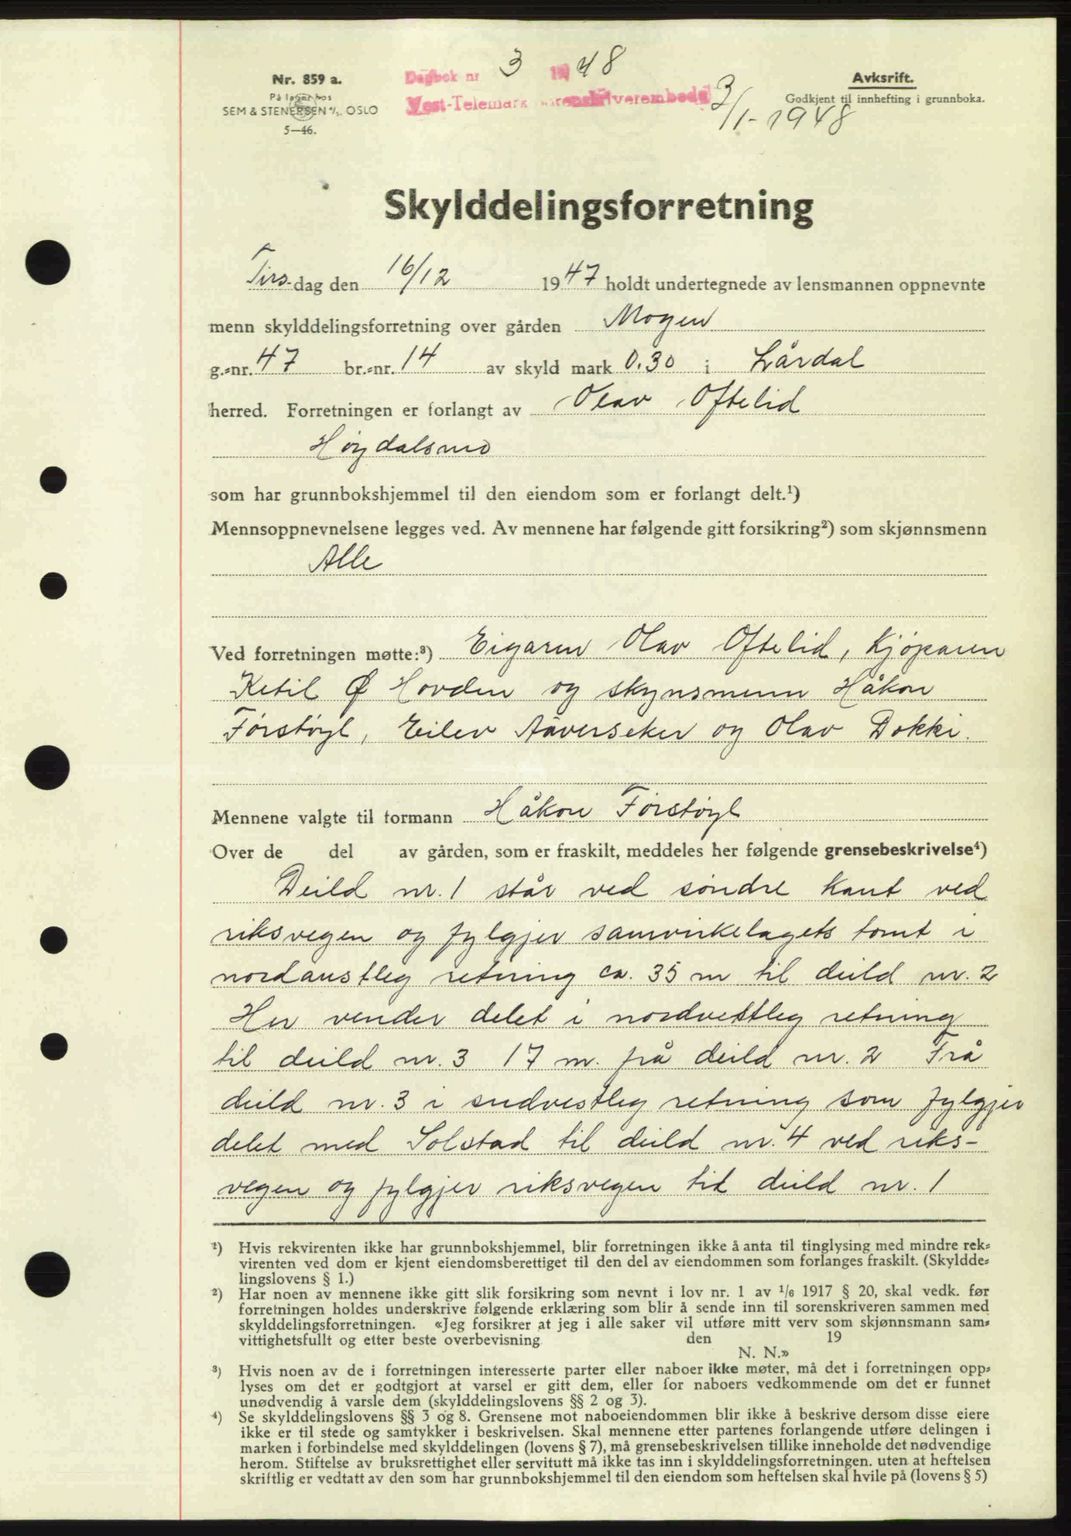 Nr. 859 a.
På lager hos
SEM & STENERSEN A/S. OSLO
5—46.
Dagbok nr 3 1948
Vest-Telemark sorenskriverembede
3/1-1948
Avksrift.
Godkjent til innhefting i grunnboka.
Skylddelingsforretning
Tirsdag den 16/12 1947 holdt undertegnede av lensmannen oppnevnte
menn skylddelingsforretning over gården Mogen
g.=nr. 47 br.=nr. 14 av skyld mark 0.30 i Lårdal
herred. Forretningen er forlangt av Olav Oftelid
Høydalsmo
som har grunnbokshjemmel til den eiendom som er forlangt delt.¹)
Mennsoppnevnelsene legges ved. Av mennene har følgende gitt forsikring²) som skjønnsmenn
Alle
Ved forretningen møtte:³) Eigaren Olav Oftelid, Kjøparen
Ketil Ø Hovden og skynsmenn Håkon
Førstøyl, Eilev Aaverseker og Olav Dokki.
Mennene valgte til formann Håkon Førstøyl
Over de del av gården, som er fraskilt, meddeles her følgende grensebeskrivelse⁴)
Deild nr. 1 står ved søndre kant ved
riksvegen og fylgjer samvirkelagets tomt i
nordaustleg retning ca. 35 m til deild nr. 2
Her vender delet i nordvestleg retning
til deild nr. 3 17 m. frå deild nr. 2 Frå
deild nr. 3 i sudvestleg retning som fylgjer
delet med Solstad til deild nr. 4 ved riks-
vegen og fylgjer riksvegen til deild nr. 1
¹) Hvis rekvirenten ikke har grunnbokshjemmel, blir forretningen ikke å anta til tinglysing med mindre rek=
virenten ved dom er kjent eiendomsberettiget til den del av eiendommen som forlanges fraskilt. (Skyldde=
lingslovens § 1.)
²) Har noen av mennene ikke gitt slik forsikring som nevnt i lov nr. 1 av 1/6 1917 § 20, skal vedk. før
forretningen holdes underskrive følgende erklæring som blir å sende inn til sorenskriveren sammen med
skylddelingsforretningen. «Jeg forsikrer at jeg i alle saker vil utføre mitt verv som skjønnsmann sam=
vittighetsfullt og etter beste overbevisning den 19
N. N.»
³) Hvis noen av de i forretningen interesserte parter eller naboer ikke møter, må det i forretningen opp=
lyses om det er godtgjort at varsel er gitt dem, eller for naboers vedkommende om det er funnet
unødvendig å varsle dem (skylddelingslovens §§ 2 og 3).
⁴) Se skylddelingslovens §§ 3 og 8. Grensene mot naboeiendommen blir ikke å beskrive dersom disse eiere
ikke er til stede og samtykker i beskrivelsen. Skal mennene etter partenes forlangende utføre delingen i
marken i forbindelse med skylddelingen (lovens § 7), må grensebeskrivelsen tillike inneholde det nødvendige
herom. Stiftelse av bruksrettighet eller servitutt må ikke tas inn i skylddelingsforretningen. uten at heftelsen
skriftlig er vedtatt av den som har grunnbokshjemmel til den eiendom som heftelsen skal hvile på (lovens § 5)